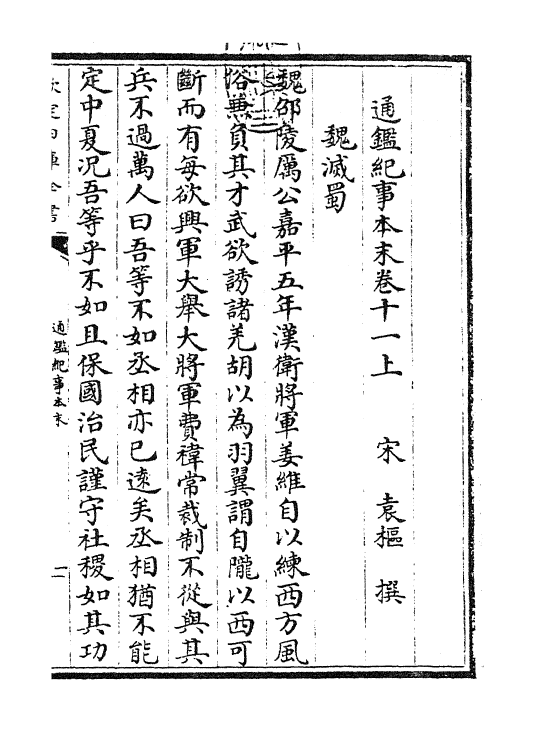 通鑑紀事本末卷十一上　宋　袁樞　撰
魏滅蜀
魏邵陵厲公嘉平五年漢衛將軍姜維自以練西方風
俗兼負其才武欲誘諸羌胡以為羽翼謂自隴以西可
斷而有每欲興軍大舉大將軍費禕常裁制不從與其
兵不過萬人曰吾等不如丞相亦已遠矣丞相猶不能
定中夏況吾等乎不如且保國治民謹守社稷如其功
通鑑紀事本末